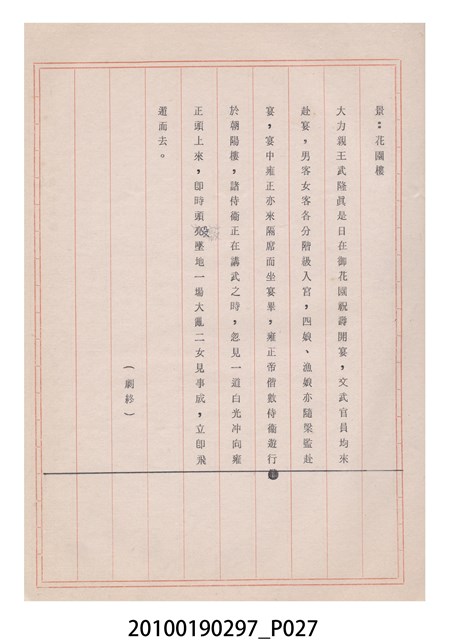 景：花園樓
大力親王武隆眞是日在御花園祝壽開宴，文武官員均來
赴宴，男客女客各分階級入宮，四娘、漁娘亦隨梁監赴
宴，宴中雍正亦來隔席而坐宴畢，雍正帝偕數侍衞遊行
於朝陽樓，諸侍衞正在講武之時，忽見一道白光冲向雍
正頭上來，卽時頭殼墜地一塲大亂二女見事成，立卽飛
遁而去。
（劇終）
20100190297_P027